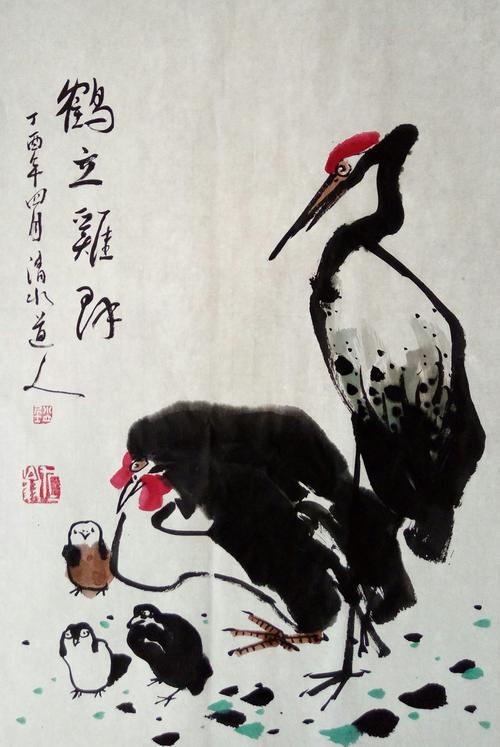 鹤立雞群
丁酉年四月清水道人